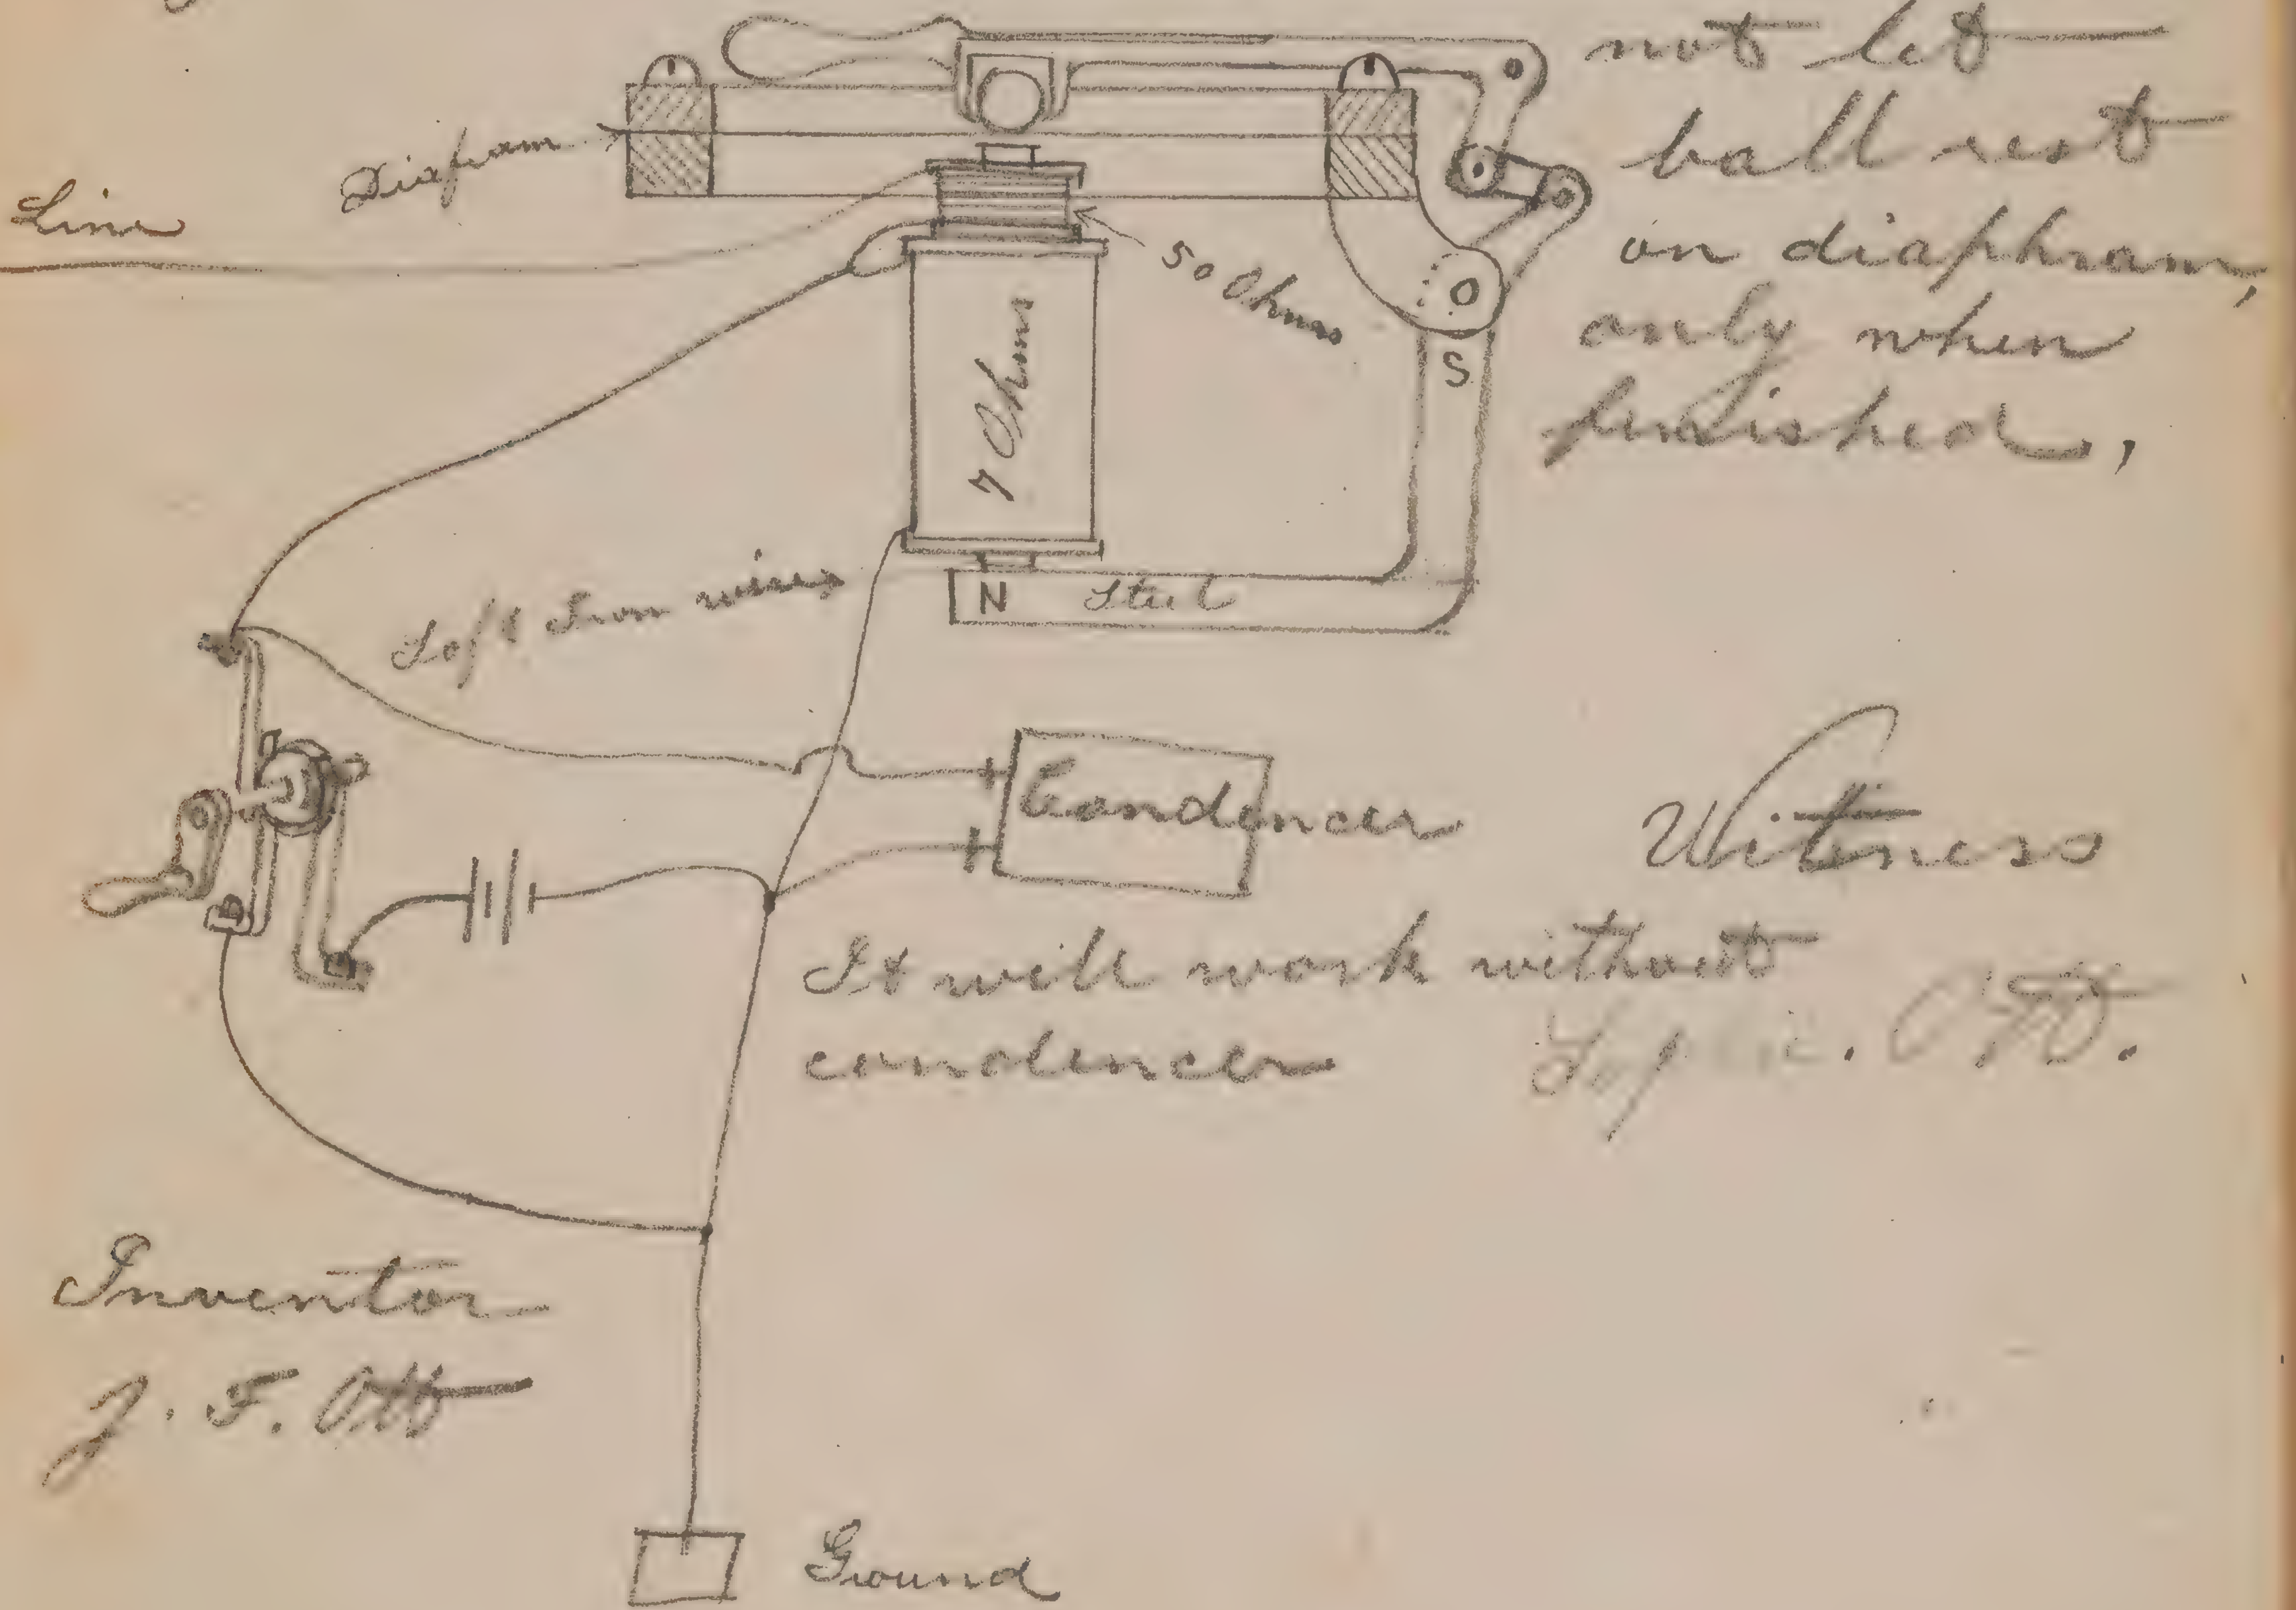 not let
ball rest
on diaphram,
only when
finished,
Diafram
Line
50 Ohms
7 Ohms
S
N Steel
Soft Iron wires
Condencer
It will work without
condencer
Witness
Ott.
Inventor
J. F. Ott
Ground